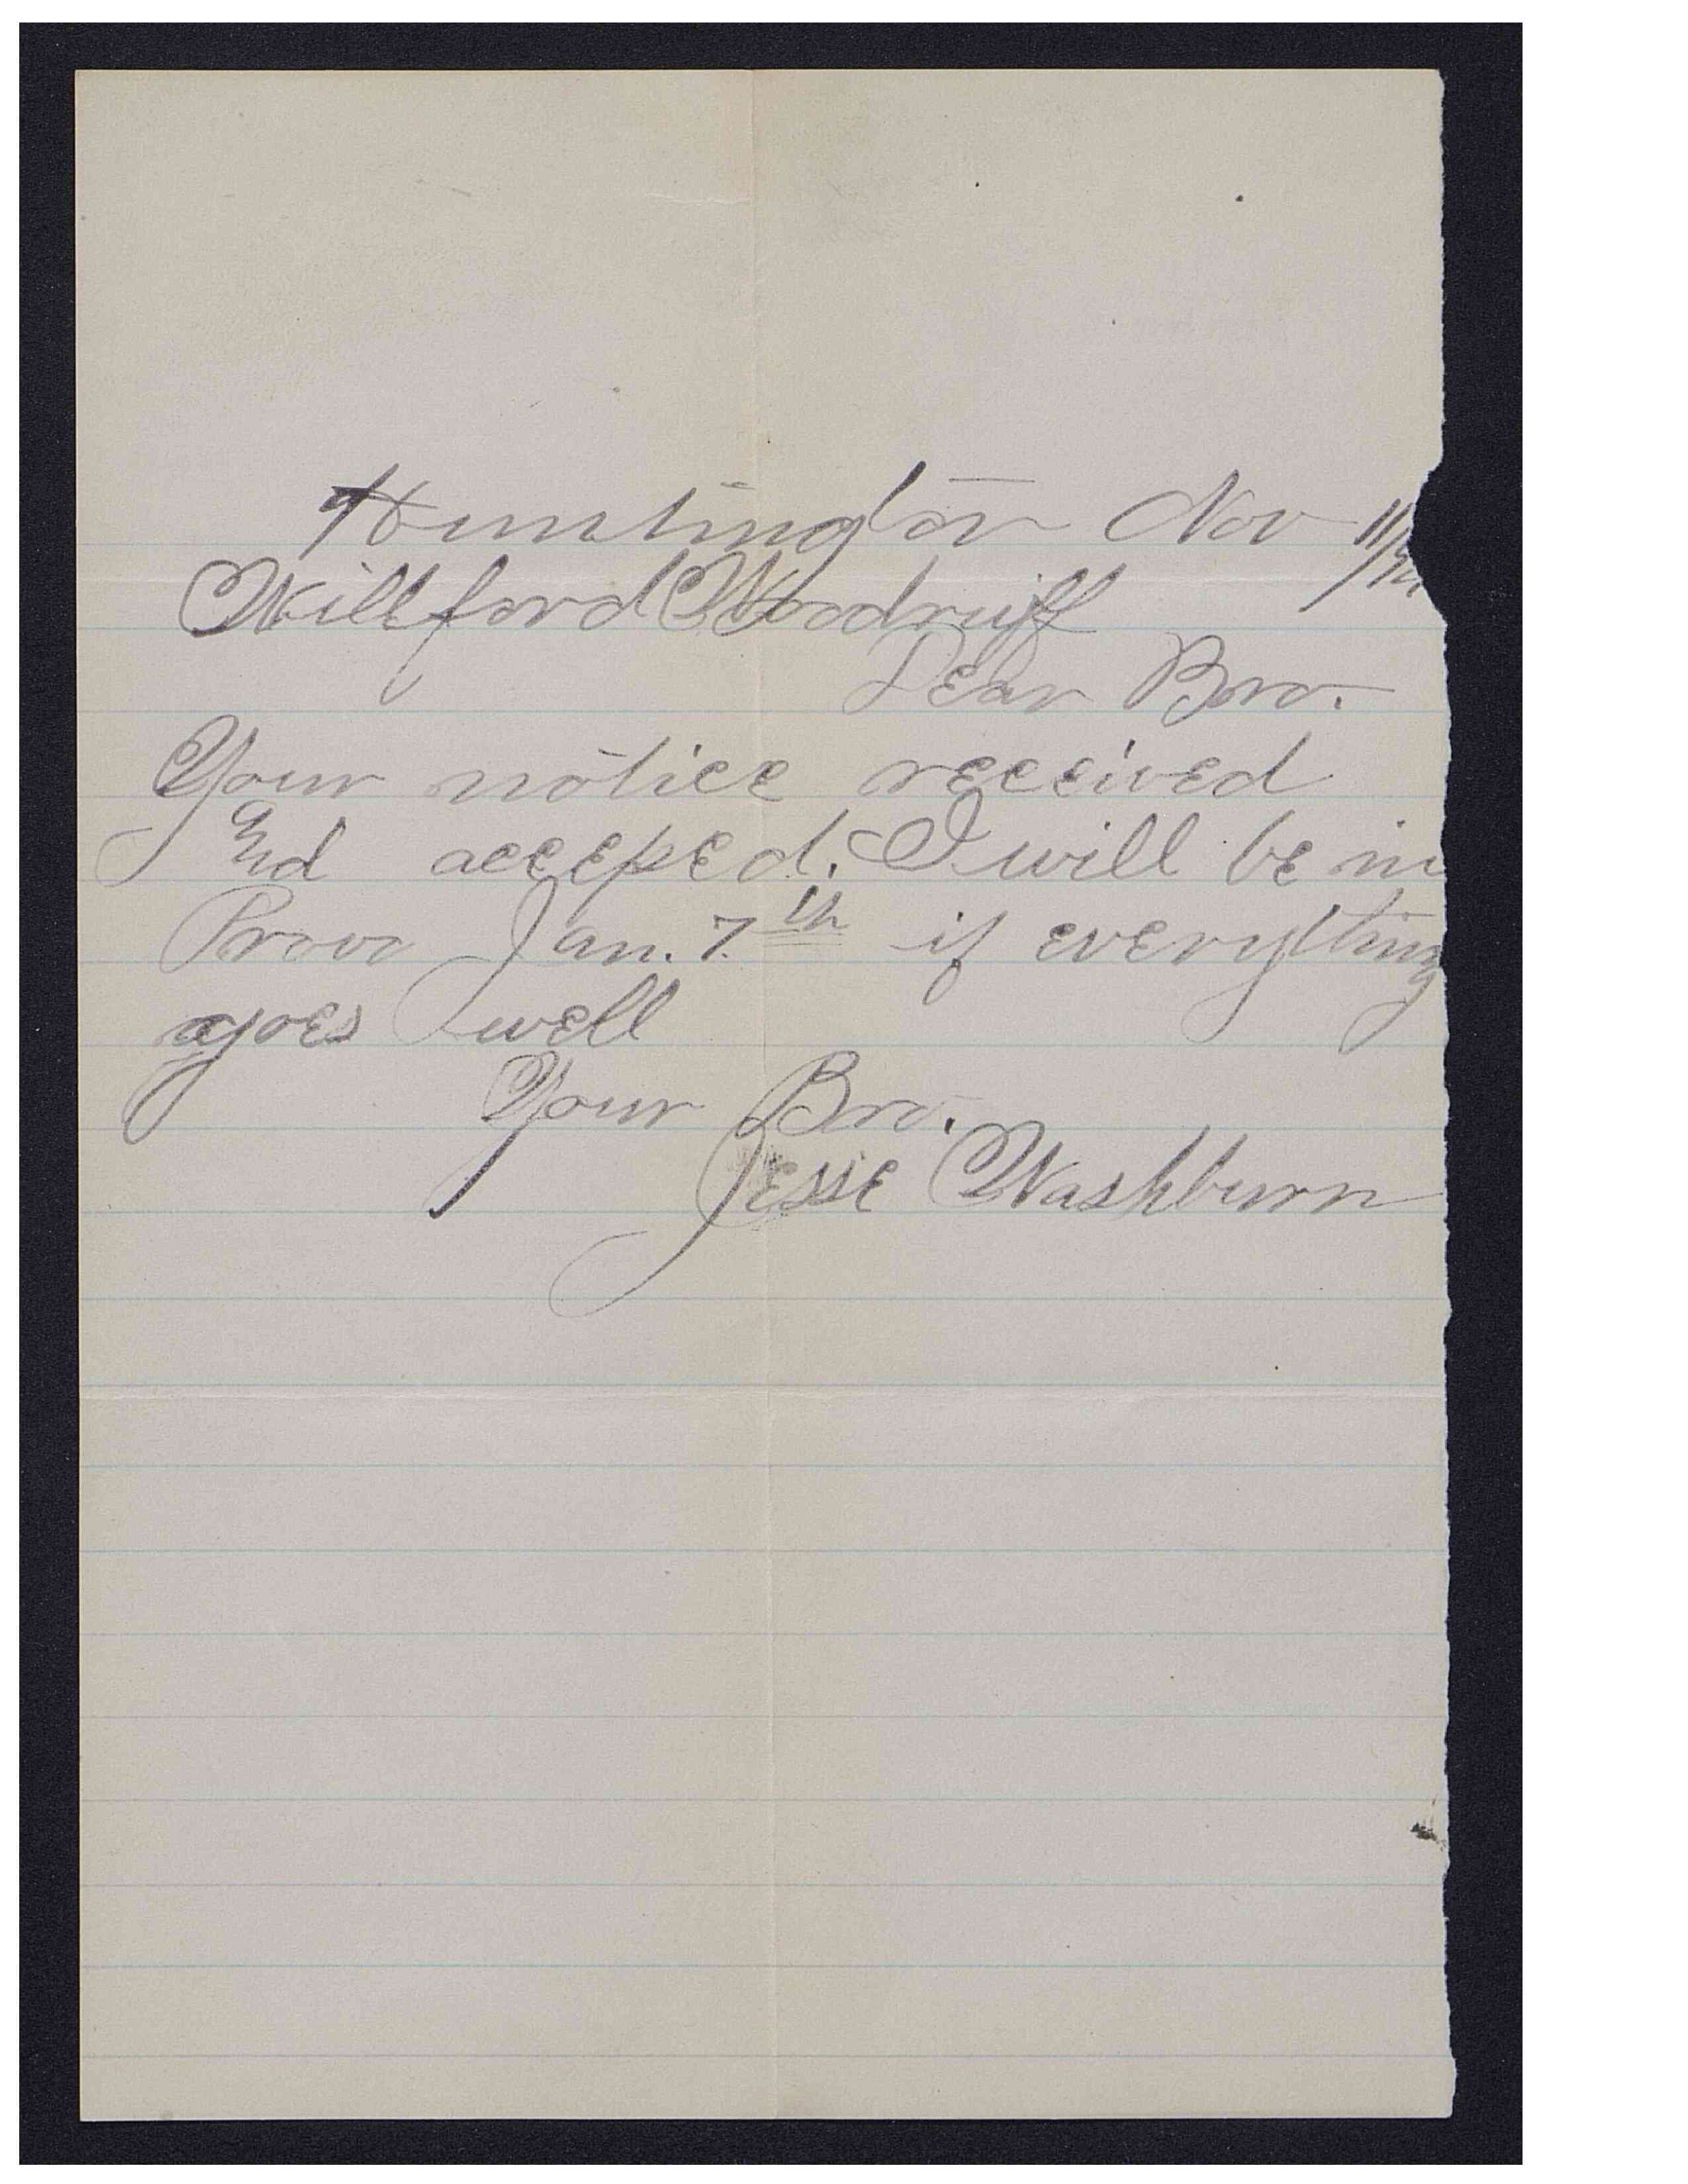 Huntington Nov 11/
Willford Woodruff
Dear Bro.
Your notice received
End acceped. I will be in
Provo Jan. 7th if everything
goes well
Your Bro.
Jesse Washburn